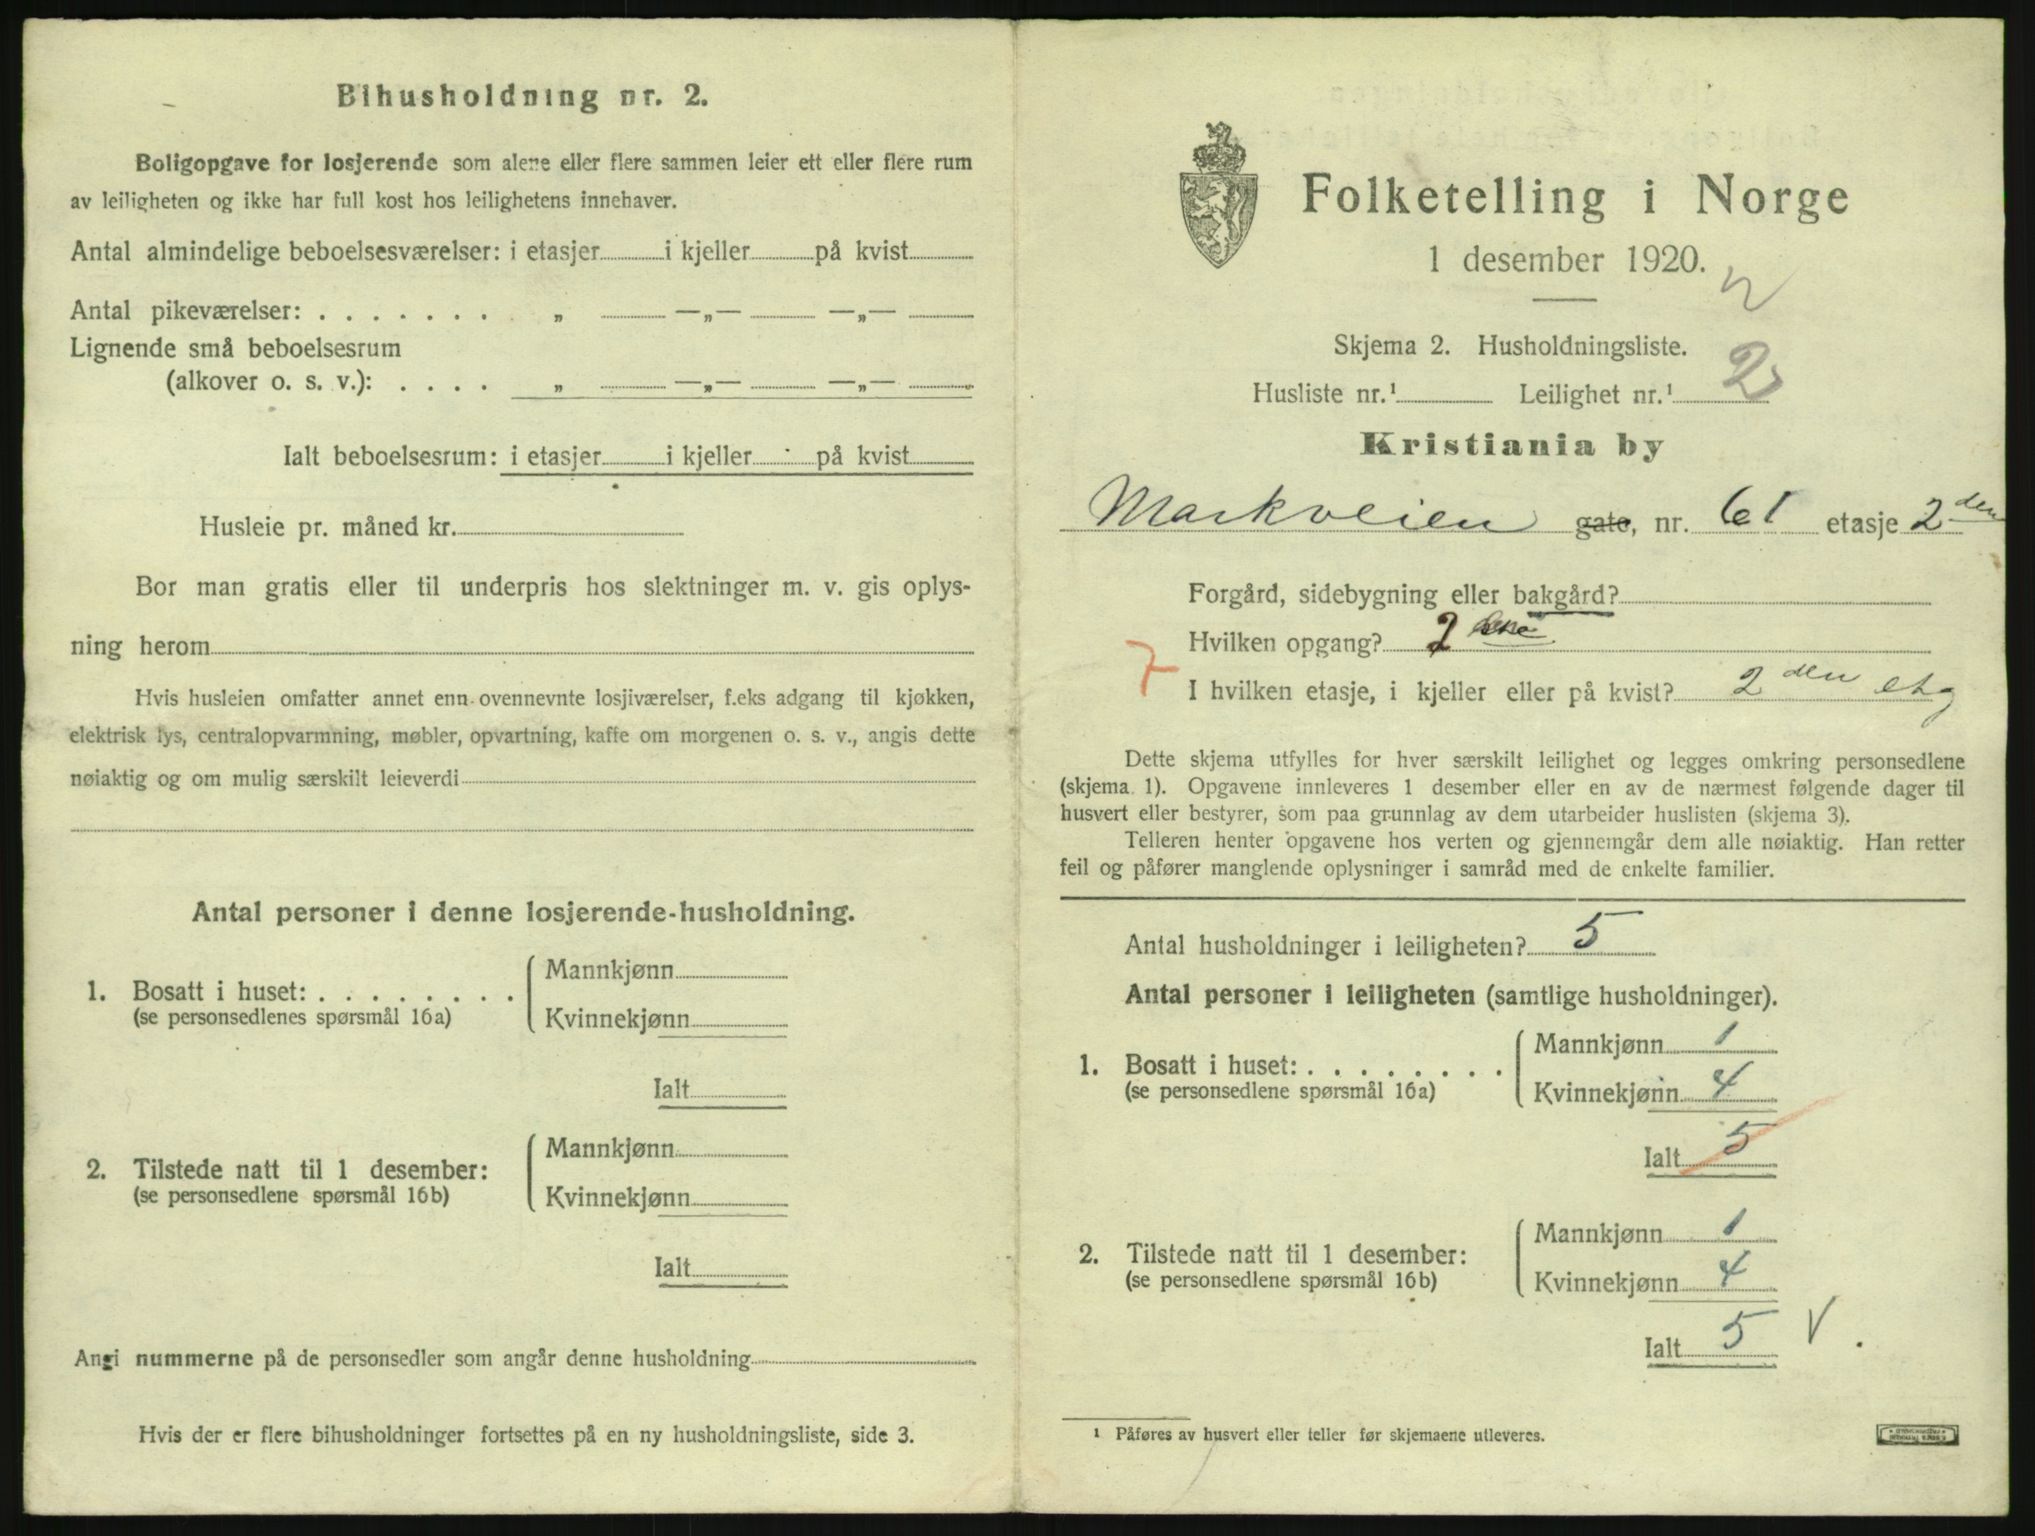 Bihusholdning nr. 2.
Boligopgave for losjerende som alene eller flere sammen leier ett eller flere rum
av leiligheten og ikke har full kost hos leilighetens innehaver.
Antal almindelige beboelsesværelser: i etasjer i kjeller på kvist
Antal pikeværelser: . . . . . . . „ —„— —„—
Lignende små beboelsesrum
(alkover o. s. v.): . . . . „ —„— —„—
Ialt beboelsesrum: i etasjer i kjeller på kvist
Husleie pr. måned kr.
Bor man gratis eller til underpris hos slektninger m. v. gis oplys-
ning herom
Hvis husleien omfatter annet enn ovennevnte losjiværelser, f.eks adgang til kjøkken,
elektrisk lys, centralopvarmning, møbler, opvartning, kaffe om morgenen o. s. v., angis dette
nøiaktig og om mulig særskilt leieverdi
Antal personer i denne losjerende-husholdning.
1. Bosatt i huset: . . . . . . . .
(se personsedlenes spørsmål 16a)
Mannkjønn
Kvinnekjønn
Ialt
2. Tilstede natt til 1 desember:
(se personsedlene spørsmål 16b)
Mannkjønn
Kvinnekjønn
Ialt
Angi nummerne på de personsedler som angår denne husholdning
Hvis der er flere bihusholdninger fortsettes på en ny husholdningsliste, side 3.
Folketelling i Norge
1 desember 1920.
Skjema 2. Husholdningsliste.
Husliste nr.¹ Leilighet nr.¹ 2
Kristiania by
Markveien gate, nr. 61 etasje 2den
Forgård, sidebygning eller bakgård?
Hvilken opgang? 2
7
I hvilken etasje, i kjeller eller på kvist? 2den etg
Dette skjema utfylles for hver særskilt leilighet og legges omkring personsedlene
(skjema 1). Opgavene innleveres 1 desember eller en av de nærmest følgende dager til
husvert eller bestyrer, som paa grunnlag av dem utarbeider huslisten (skjema 3).
Telleren henter opgavene hos verten og gjennemgår dem alle nøiaktig. Han retter
feil og påfører manglende oplysninger i samråd med de enkelte familier.
Antal husholdninger i leiligheten? 5
Antal personer i leiligheten (samtlige husholdninger).
1. Bosatt i huset: . . . . . . . .
(se personsedlene spørsmål 16a)
Mannkjønn 1
Kvinnekjønn 4
Ialt 5
2. Tilstede natt til 1 desember:
(se personsedlene spørsmål 16b)
Mannkjønn 1
Kvinnekjønn 4
Ialt 5 V
¹ Påføres av husvert eller teller før skjemaene utleveres.